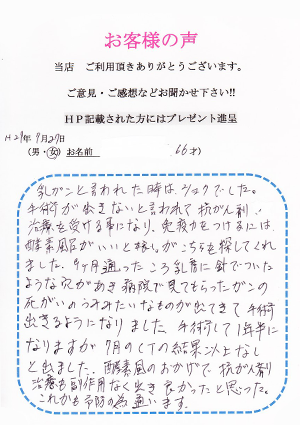 お客様の声
当店 ご利用頂きありがとうございます。
ご意見・ご感想などお聞かせ下さい!!
HP記載された方にはプレゼント進呈
H29年9月27日
(男・女) お名前 66才)
乳ガンと言われた時はショックでした。
手術が出きないと言われて抗がん剤
治療を受ける事になり、免疫力をつけるには、
酵素風呂がいいと娘がこちらを探してくれ
ました。9ヶ月通ったころ乳首に針でついた
ような穴があき病院で見てもらったガンの
死がいのうみみたいなものが出てきて手術
出きるようになりました 手術して1年半に
なりますが7月のCTの結果以上なし
と出ました。酵素風のおかげで抗がん剤
治療も副作用なく出き良かったと思った。
これからも予防の為通います。